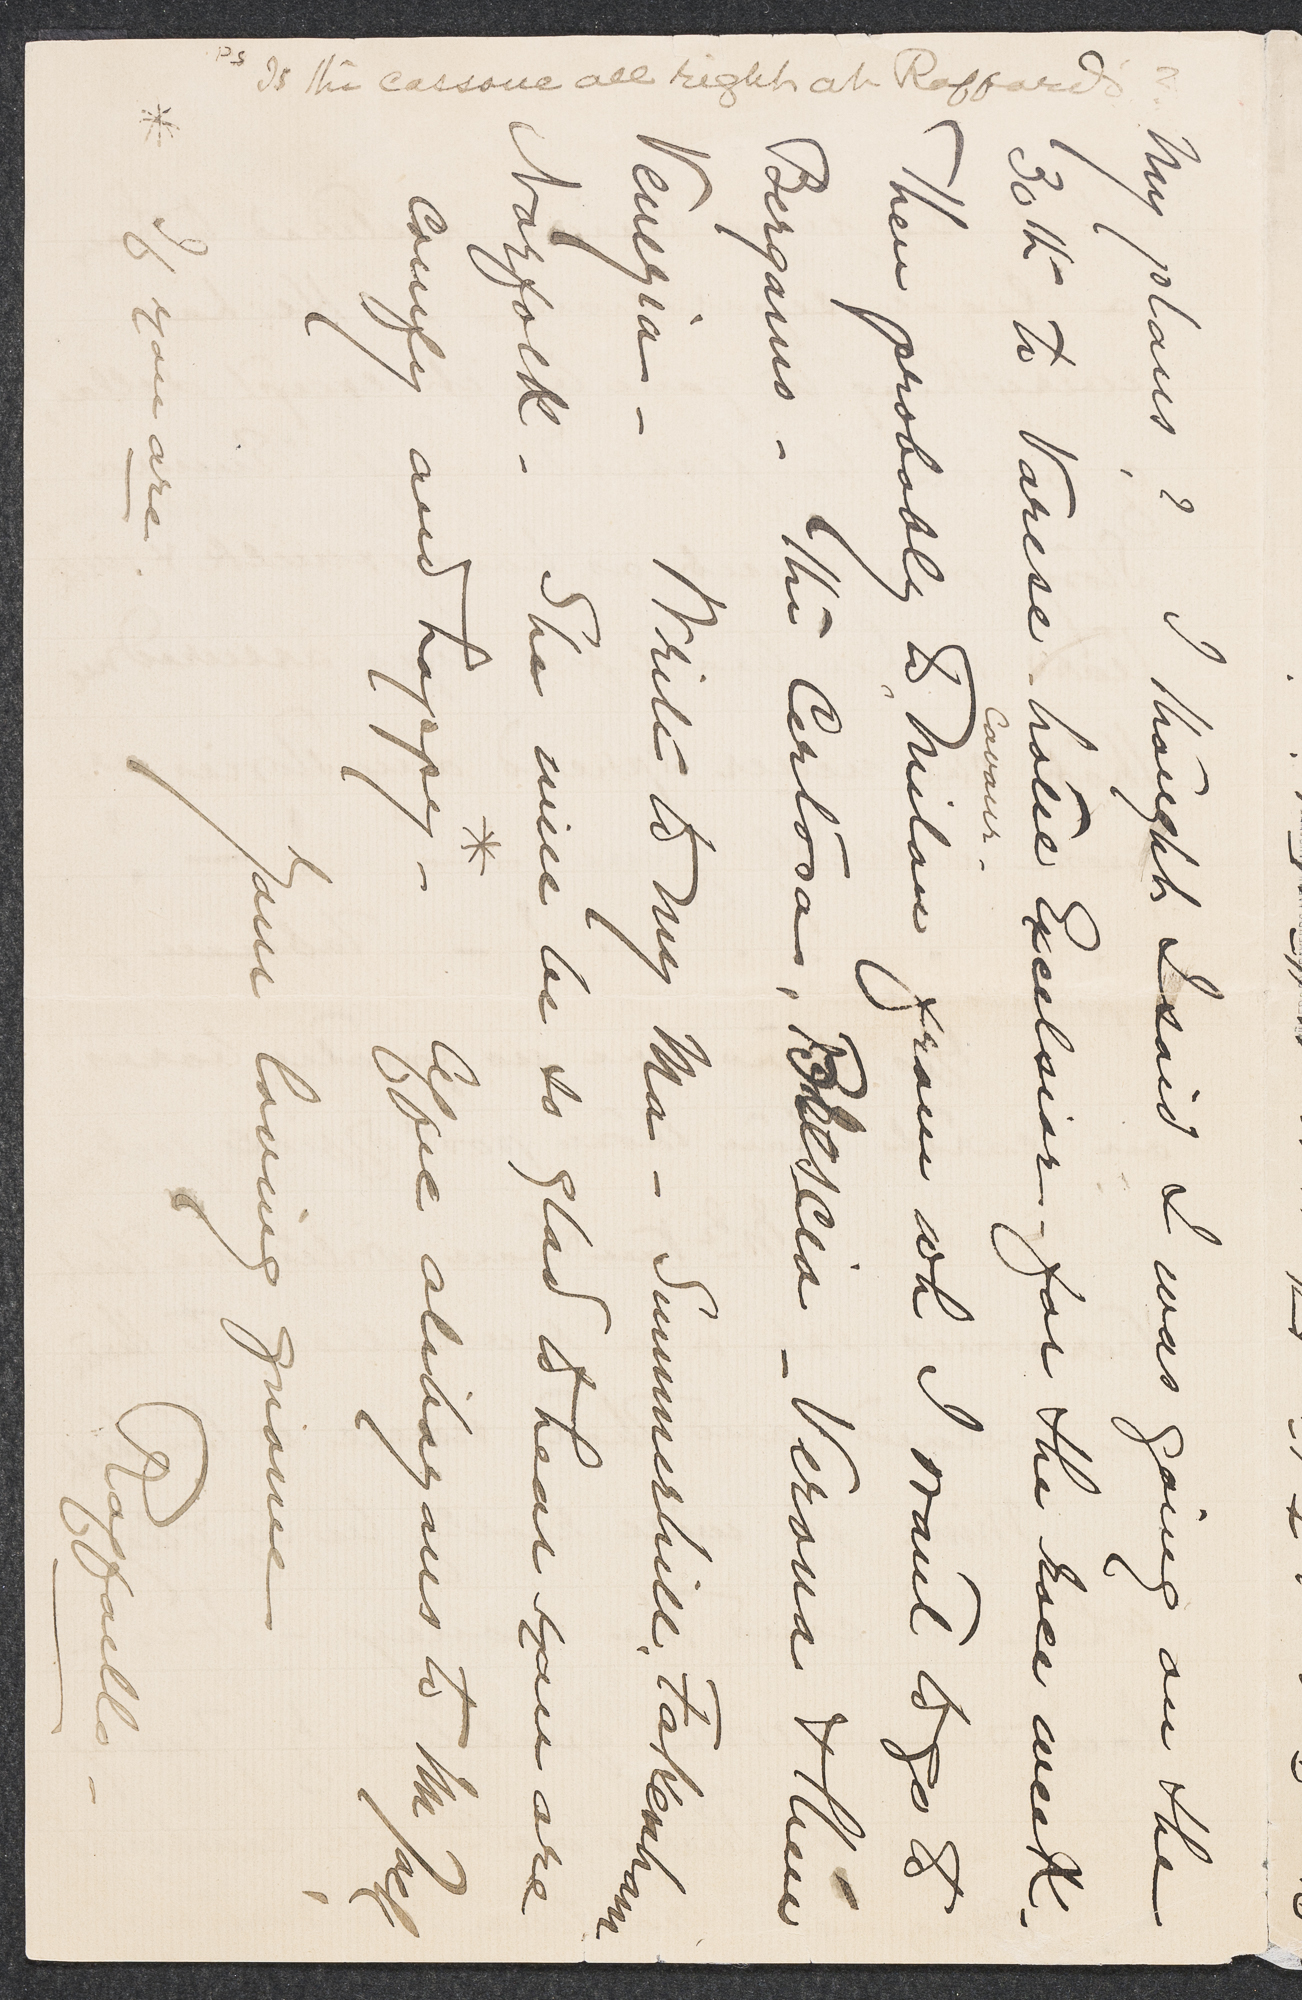 My plans? I thought I said I was going on the
30th to Varese hotel Excelsior for the race week.
Then probably to Milan, Cavour - from wh I want to go to
Bergamo - the Certosa, Brescia - Verona & then
Venezia - Write to my Ma - Summerhill, Fakenham
Norfolk - She will be so glad to hear you are
comfy and happy - * Affee al
* If you are.
Your loving
Raffaello -
PS Is the cassone all right at Raffords?